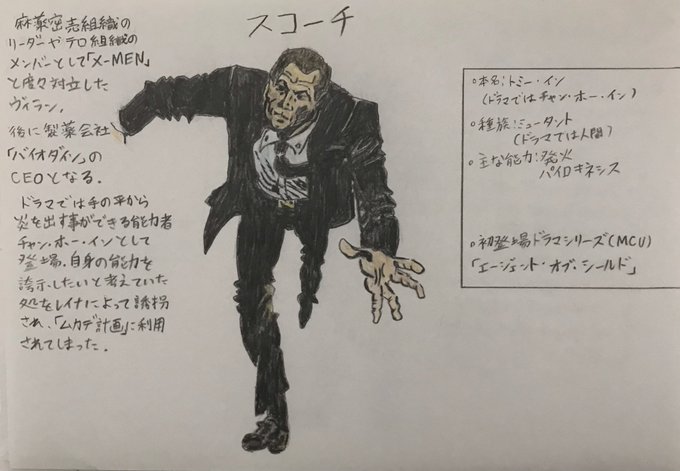 スコーチ
麻薬密売組織の
リーダーやテロ組織の
メンバーとして「X-MEN」
と度々対立した
ヴィラン。
後に製薬会社
「バイオダイン」の
CEOとなる。
ドラマでは手の平から
炎を出す事ができる能力者
チャン・ホー・インとして
登場。自身の能力を
誇示したいと考えていた
処をレイナによって誘拐
され、「ムカデ計画」に利用
されてしまった。
○本名:トミー・イン
(ドラマではチャン・ホー・イン)
○種族:ミュータント
(ドラマでは人間)
○主な能力:発火
パイロキネシス
○初登場ドラマシリーズ(MCU)
「エージェント・オブ・シールド」